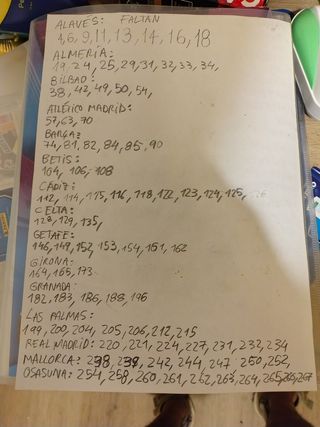 ALAVÉS: FALTAN
1,6,9,11,13,14,16,18
ALMERÍA:
19,24,25,29,31,32,33,34,
BILBAO:
38,42,49,50,54,
ATLÉTICO MADRID:
57,63,70
BARÇA:
74,81,82,84,85,90
BETIS:
104,106,108
CÁDIZ:
112,114,115,116,118,122,123,124,125,
CELTA:
128,129,135,
GETAFE:
146,149,152,153,154,161,162
GIRONA:
164,165,173
GRANADA:
182,183,186,188,196
LAS PALMAS:
199,200,204,205,206,212,215
REAL MADRID: 220,221,224,227,231,232,234
MALLORCA: 238,239,242,244,247,250,252,
OSASUNA: 254,258,260,261,262,263,264,265,266,267